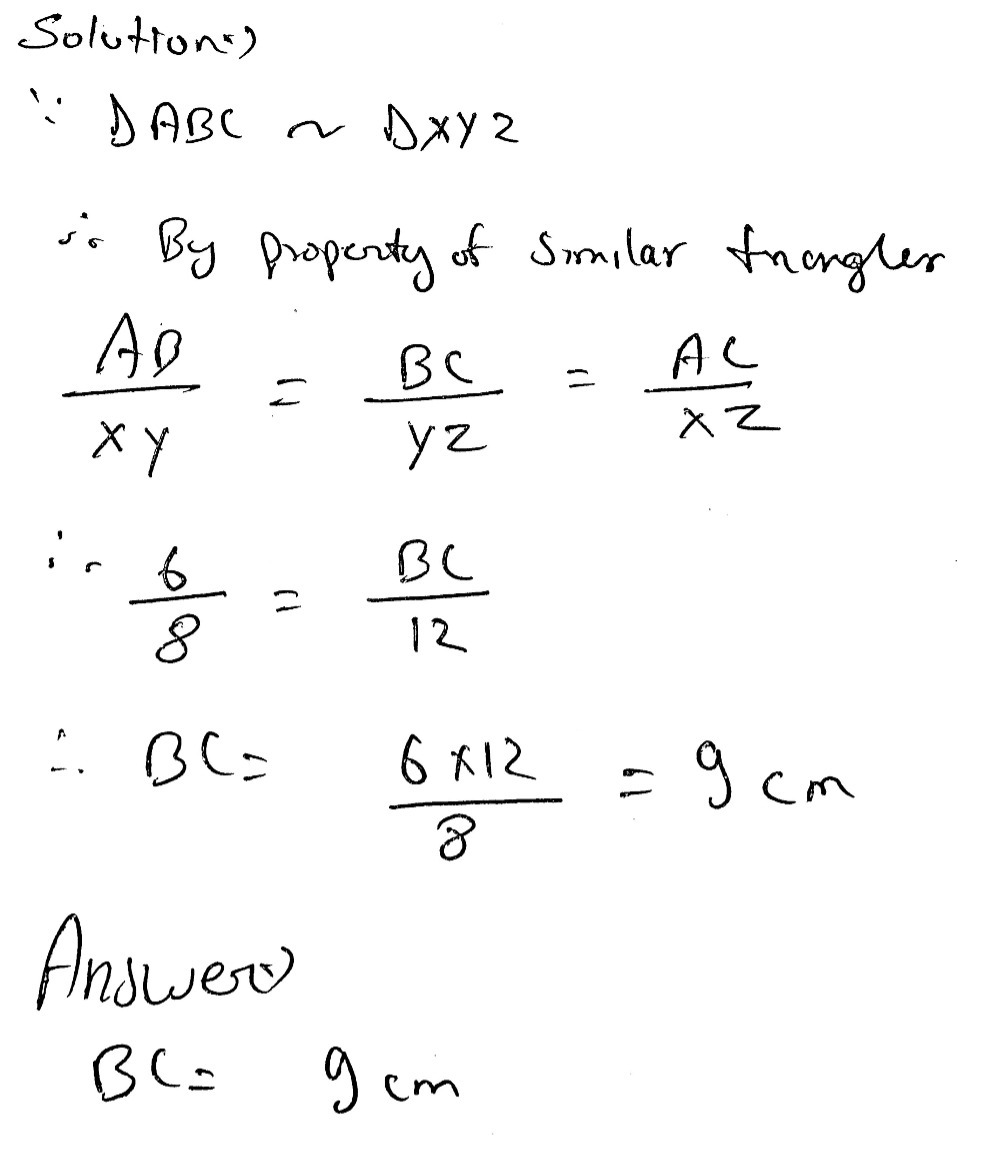 Solution:)
∵ Δ ABC ~ ΔXYZ
∴ By property of similar triangles
AB/XY = BC/YZ = AC/XZ
∴ 6/8 = BC/12
∴ BC = 6×12/8 = 9 cm
Answer:)
BC = 9 cm